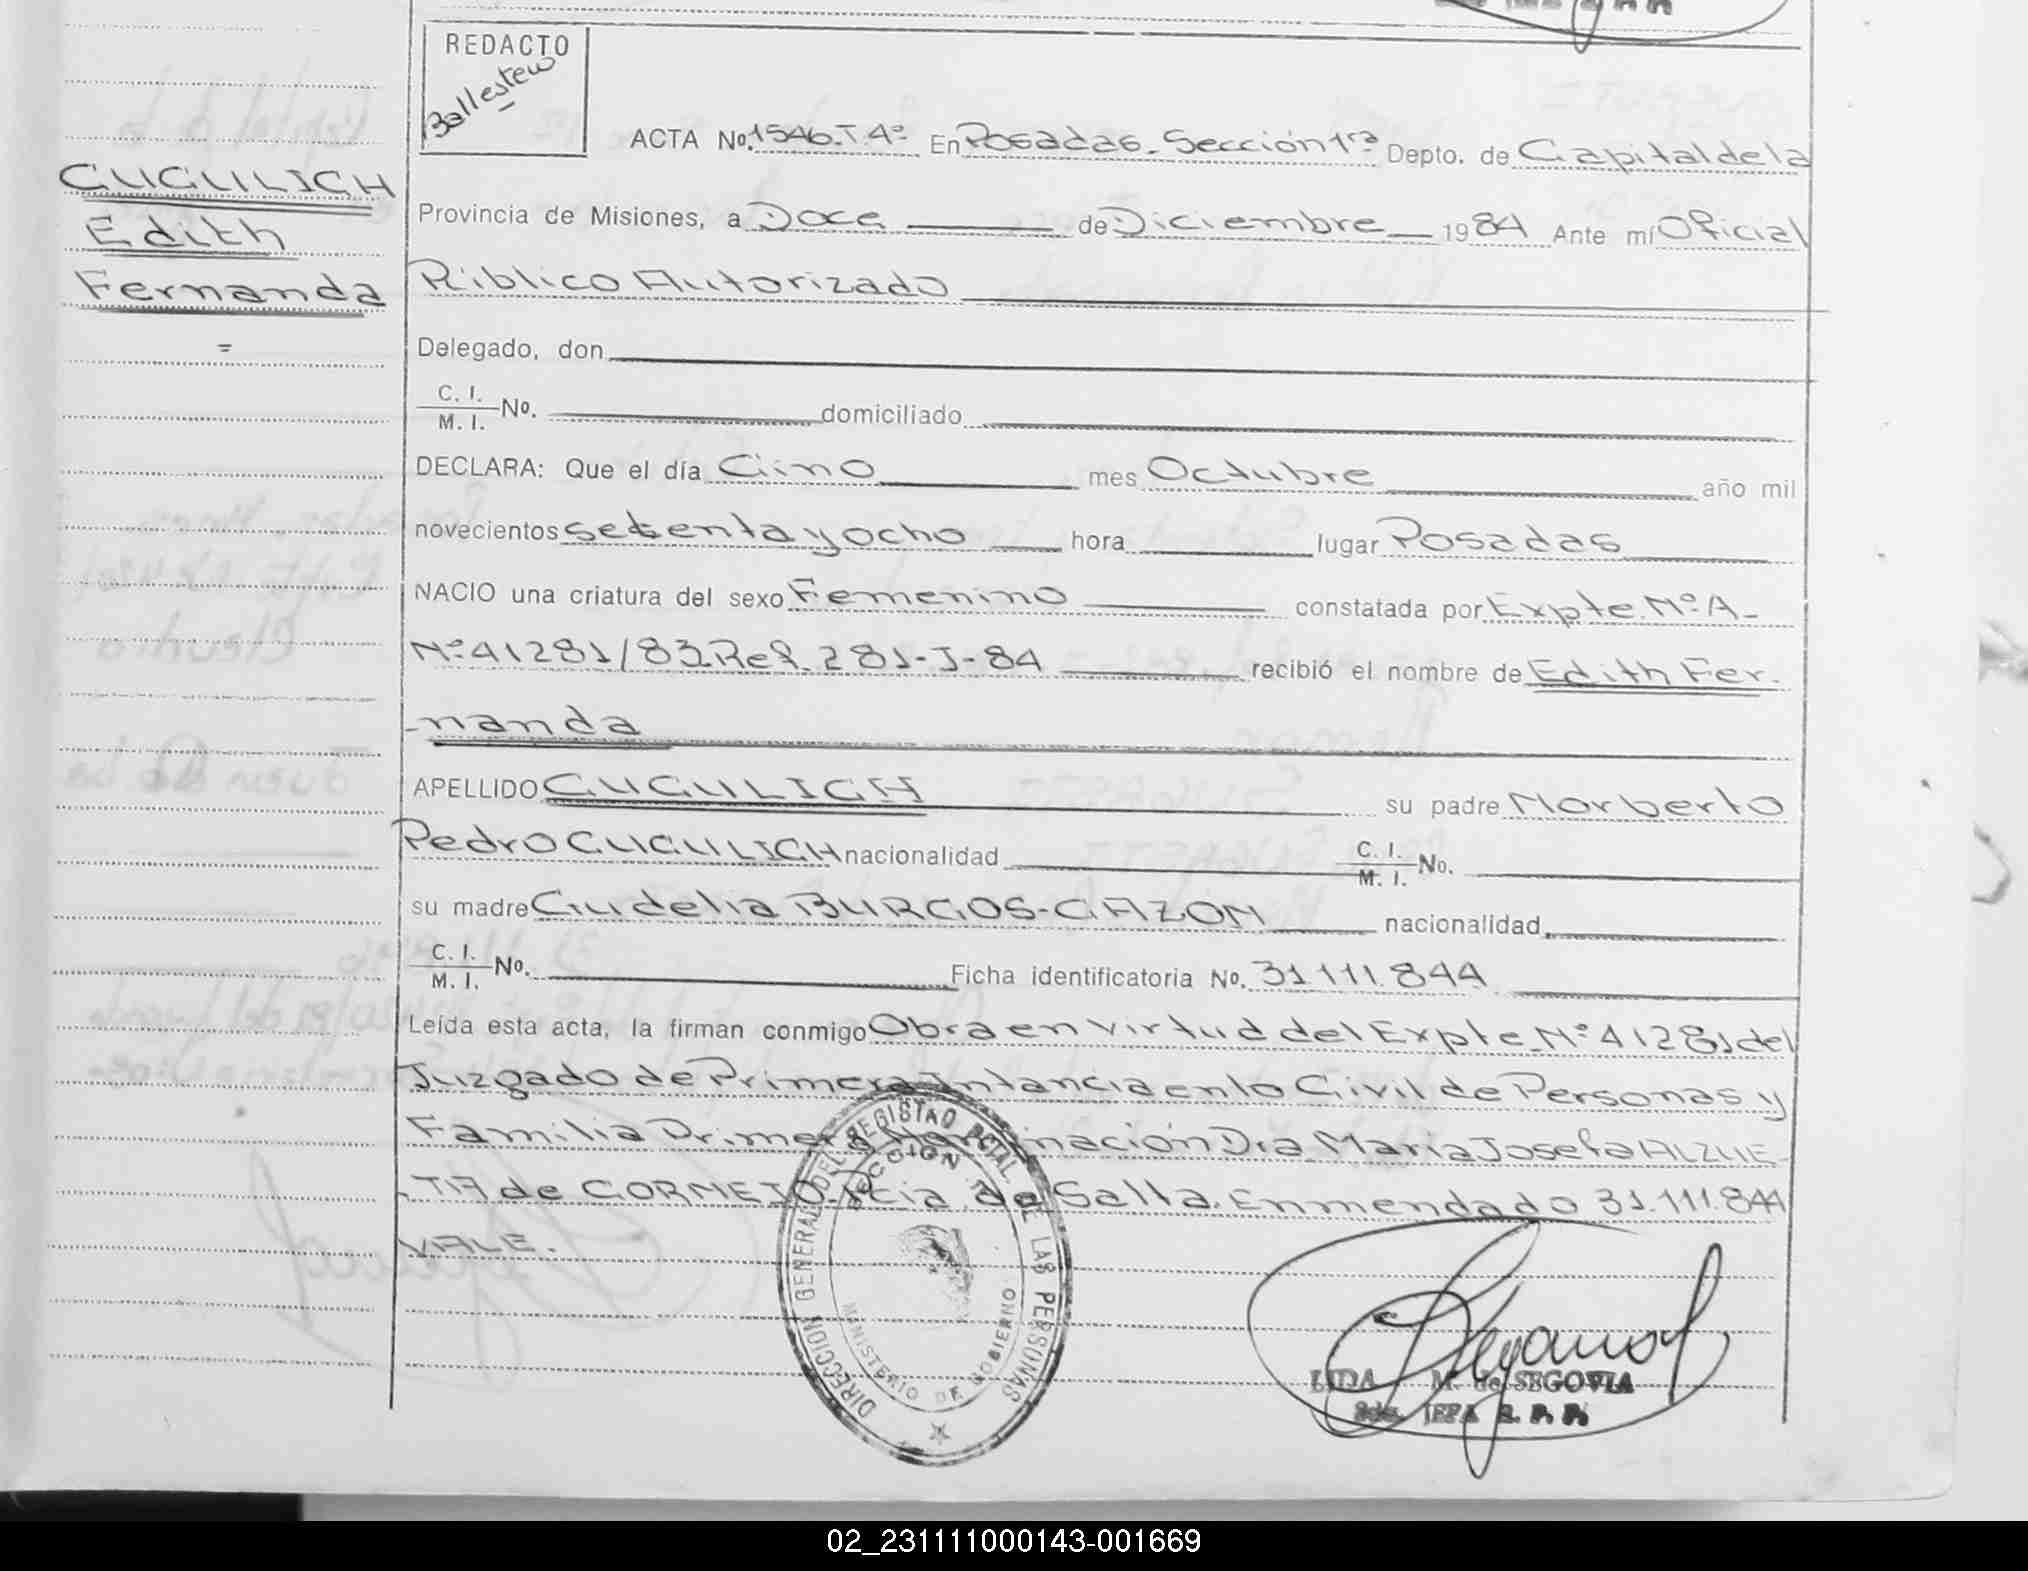 REDACTO
Ballestero
ACTA No. 1546-T.4º En Posadas. Sección 1ra Depto. de Capital de la
GUGULICH
Edith
Fernanda
=
Provincia de Misiones, a Doce de Diciembre 1984 Ante mí Oficial
Público Autorizado
Delegado, don
C. I.
M. I. No. domiciliado
DECLARA: Que el día mes Octubre año mil
novecientos setenta y ocho hora lugar Posadas
NACIO una criatura del sexo Femenino constatada por Expte. Nº A-
Nº 41281/83 Ref. 281-J-84 recibió el nombre de Edith Fer-
-nanda
APELLIDO GUGULICH su padre Norberto
Pedro GUGULICH nacionalidad C. I.
M. I. No.
su madre Gudelia BURGOS-GAZON nacionalidad
C. I.
M. I. No. Ficha identificatoria No. 31.111.844
Leída esta acta, la firman conmigo Obra en virtud del Expte. Nº 41281 del
Juzgado de Primera Intancia en lo Civil de Personas y
Familia Primera Dra Maria Josefa ALZUE-
-TA de CORNEJO- Pcia. de Salta. Enmendado 31.111.844
VALE.
DIRECCION GENERAL DEL REGISTRO PCIAL. DE LAS PERSONAS
SECCION
MINISTERIO DE GOBIERNO
LIDA M. de SEGOVIA
JEFA R. P. P.
02_231111000143-001669